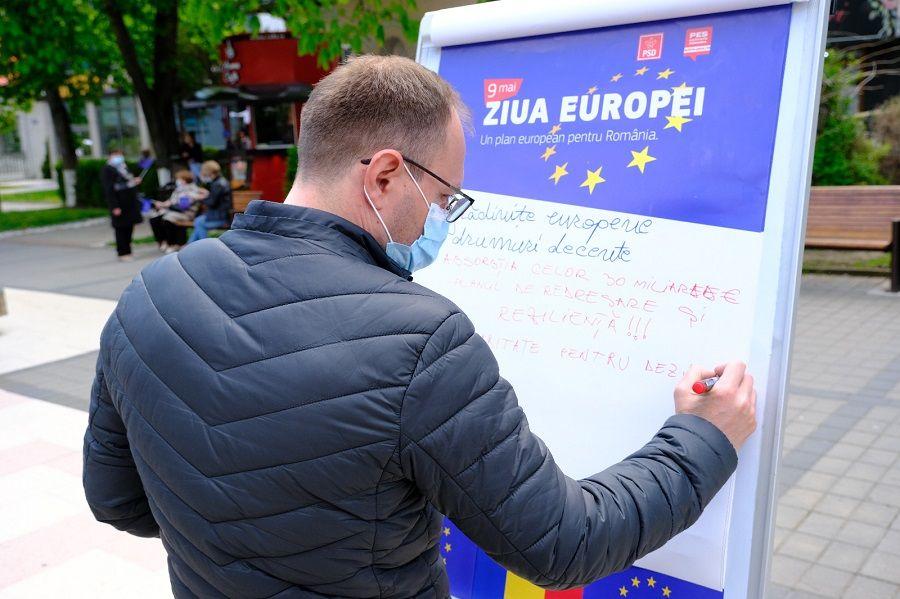 PSD
PES
9 mai
ZIUA EUROPEI
Un plan european pentru România.
europene
drumuri decente
ABSORBȚIA CELOR 30 MILIARDE €
PLANUL DE REDRESARE ȘI
REZILIENȚĂ !!!
PENTRU